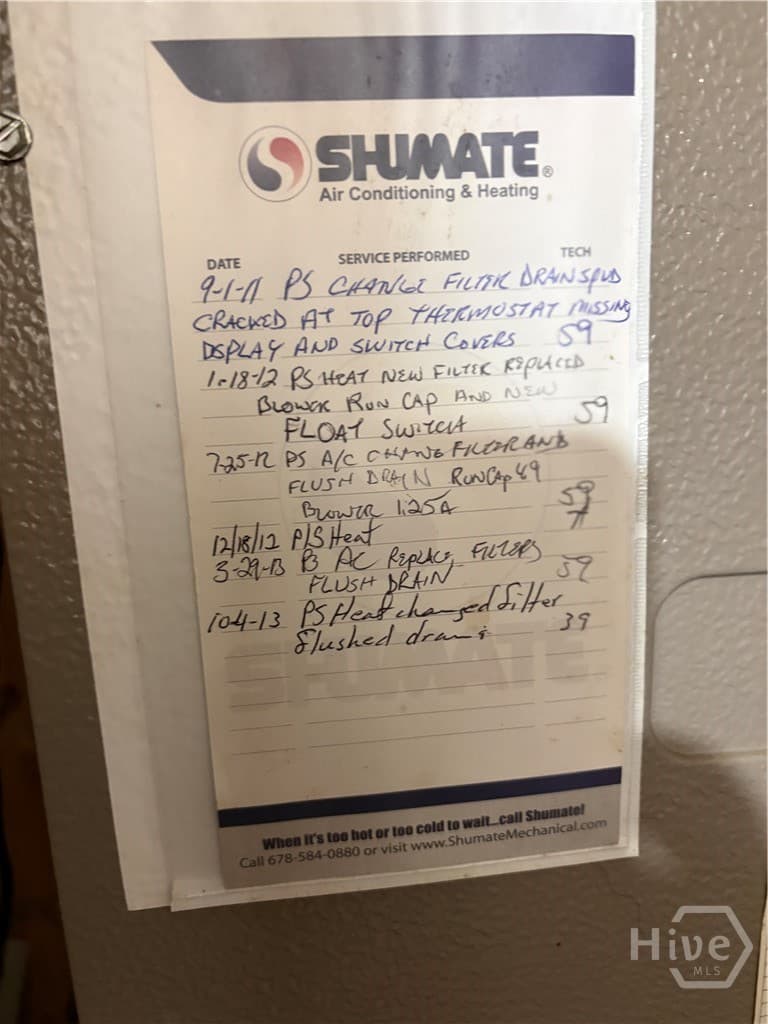 SHUMATE®
Air Conditioning & Heating
DATE SERVICE PERFORMED TECH
9-1-11 PS CHANGE FILTER DRAIN SPUD
CRACKED AT TOP THERMOSTAT MISSING
DSPLAY AND SWITCH COVERS 59
1-18-12 PS HEAT NEW FILTER REPLACED
BLOWER RUN CAP AND NEW
FLOAT SWITCH 59
7-25-12 PS A/C CHANGE FILTER AND
FLUSH DRAIN RUN CAP 49
BLOWER 1.25A 59
12/18/12 P/S Heat 71
3-29-13 PS AC REPLACE FILTERS
FLUSH DRAIN 59
10-4-13 PS Heat changed filter
flushed drain 39
SHUMATE
When it's too hot or too cold to wait...call Shumate!
Call 678-584-0880 or visit www.ShumateMechanical.com
Hive
MLS